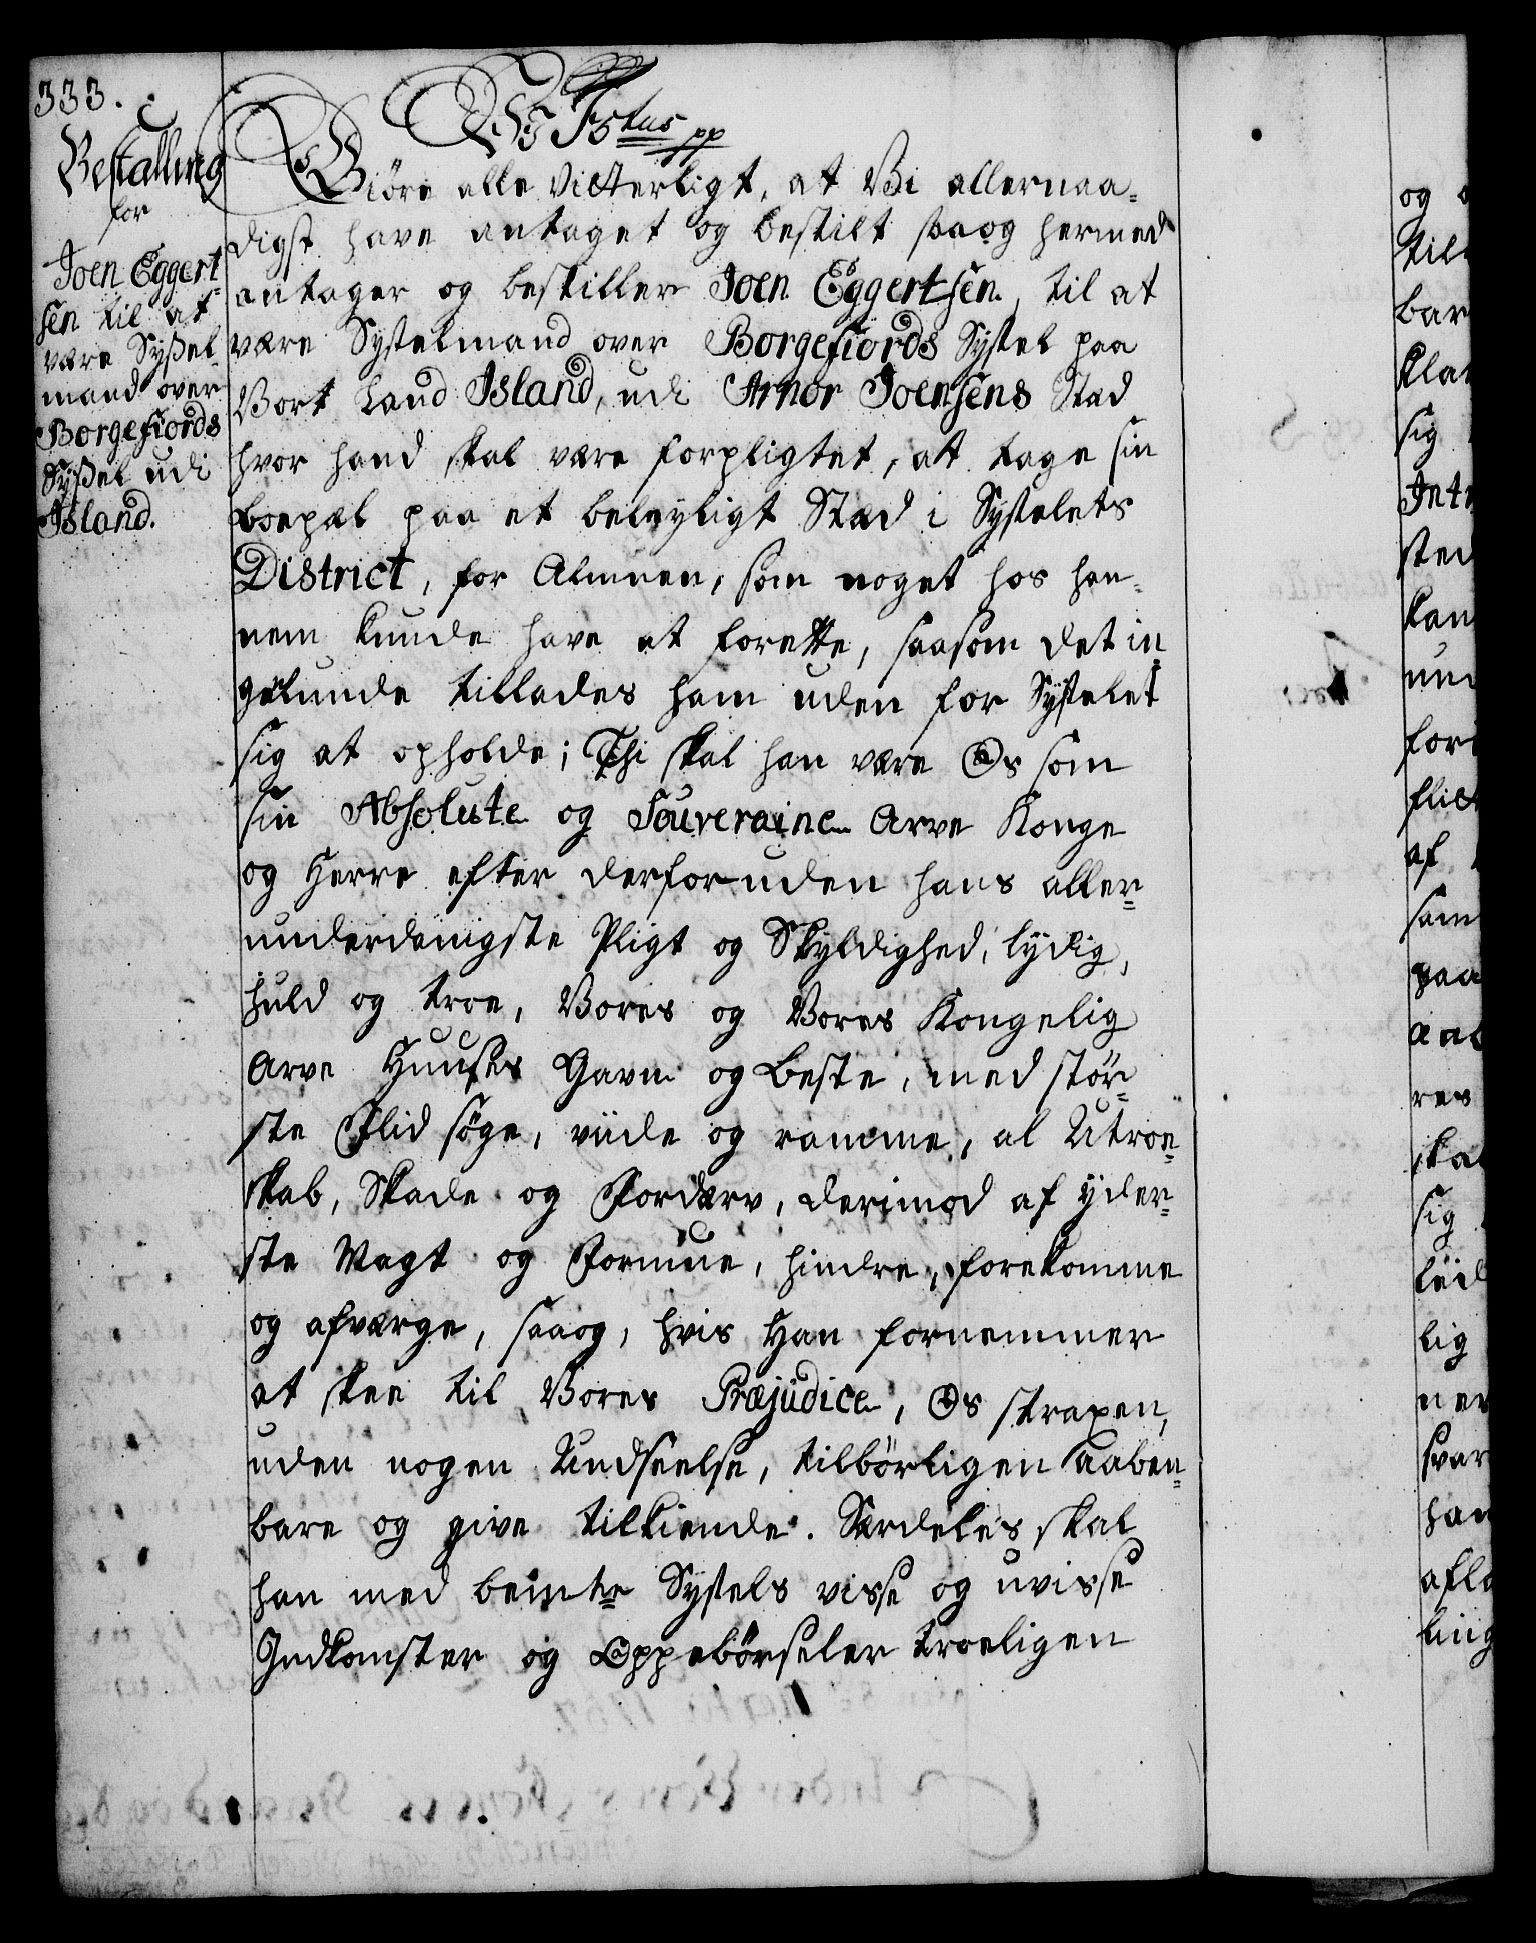 333.
Bestalling
for
Joen Eggert
sen til at
være Syssel
mand over
Borgefiords
Syssel udi
Island.
Giöre alle Vitterligt, at Vi allernaa-
digst have antaget og bestilt saaog hermed
antager og bestiller Joen Eggertsen, til at
være Sysselmand over Borgefiords Syssel paa
Vort Land Island, udi Arnor Joensens Stæd
hvor hand skal være forpligtet, at tage sin
boepæl paa et beleyligt Stæd i Sysselets
District, for Almuen, som noget hos han-
nem kunde have at forrette, saasom det in
gelunde tillades ham uden for Sysselet
sig at opholde; Thi skal han være Os som
sin Absolute og Souveraine Arve Konge
og Herre efter derforuden hans aller-
underdanigste Pligt og Skyldighed, lydig,
huld og troe, Vores og Vores Kongelig
Arve Huuses Gavn og Beste, med stör-
ste Flid söge, viide og ramme, al Utroe-
skab, Skade og Fordærv, derimod af yder-
ste Magt og Formue, hindre, forekomme
og afværge, saaog, hvis Han fornemmer
at skee til Vores Præjudice, Os straxen,
uden nogen Undseelse, tilbörligen aaben-
bare og give tilkiende. Særdeles skal
han med bemte Syssels visse og uvisse
Indkomster og Oppebörseler troeligen
og
bar
sig
sted
kan
af
sam
paa
res
skal
sig
lig
ner
svar
han